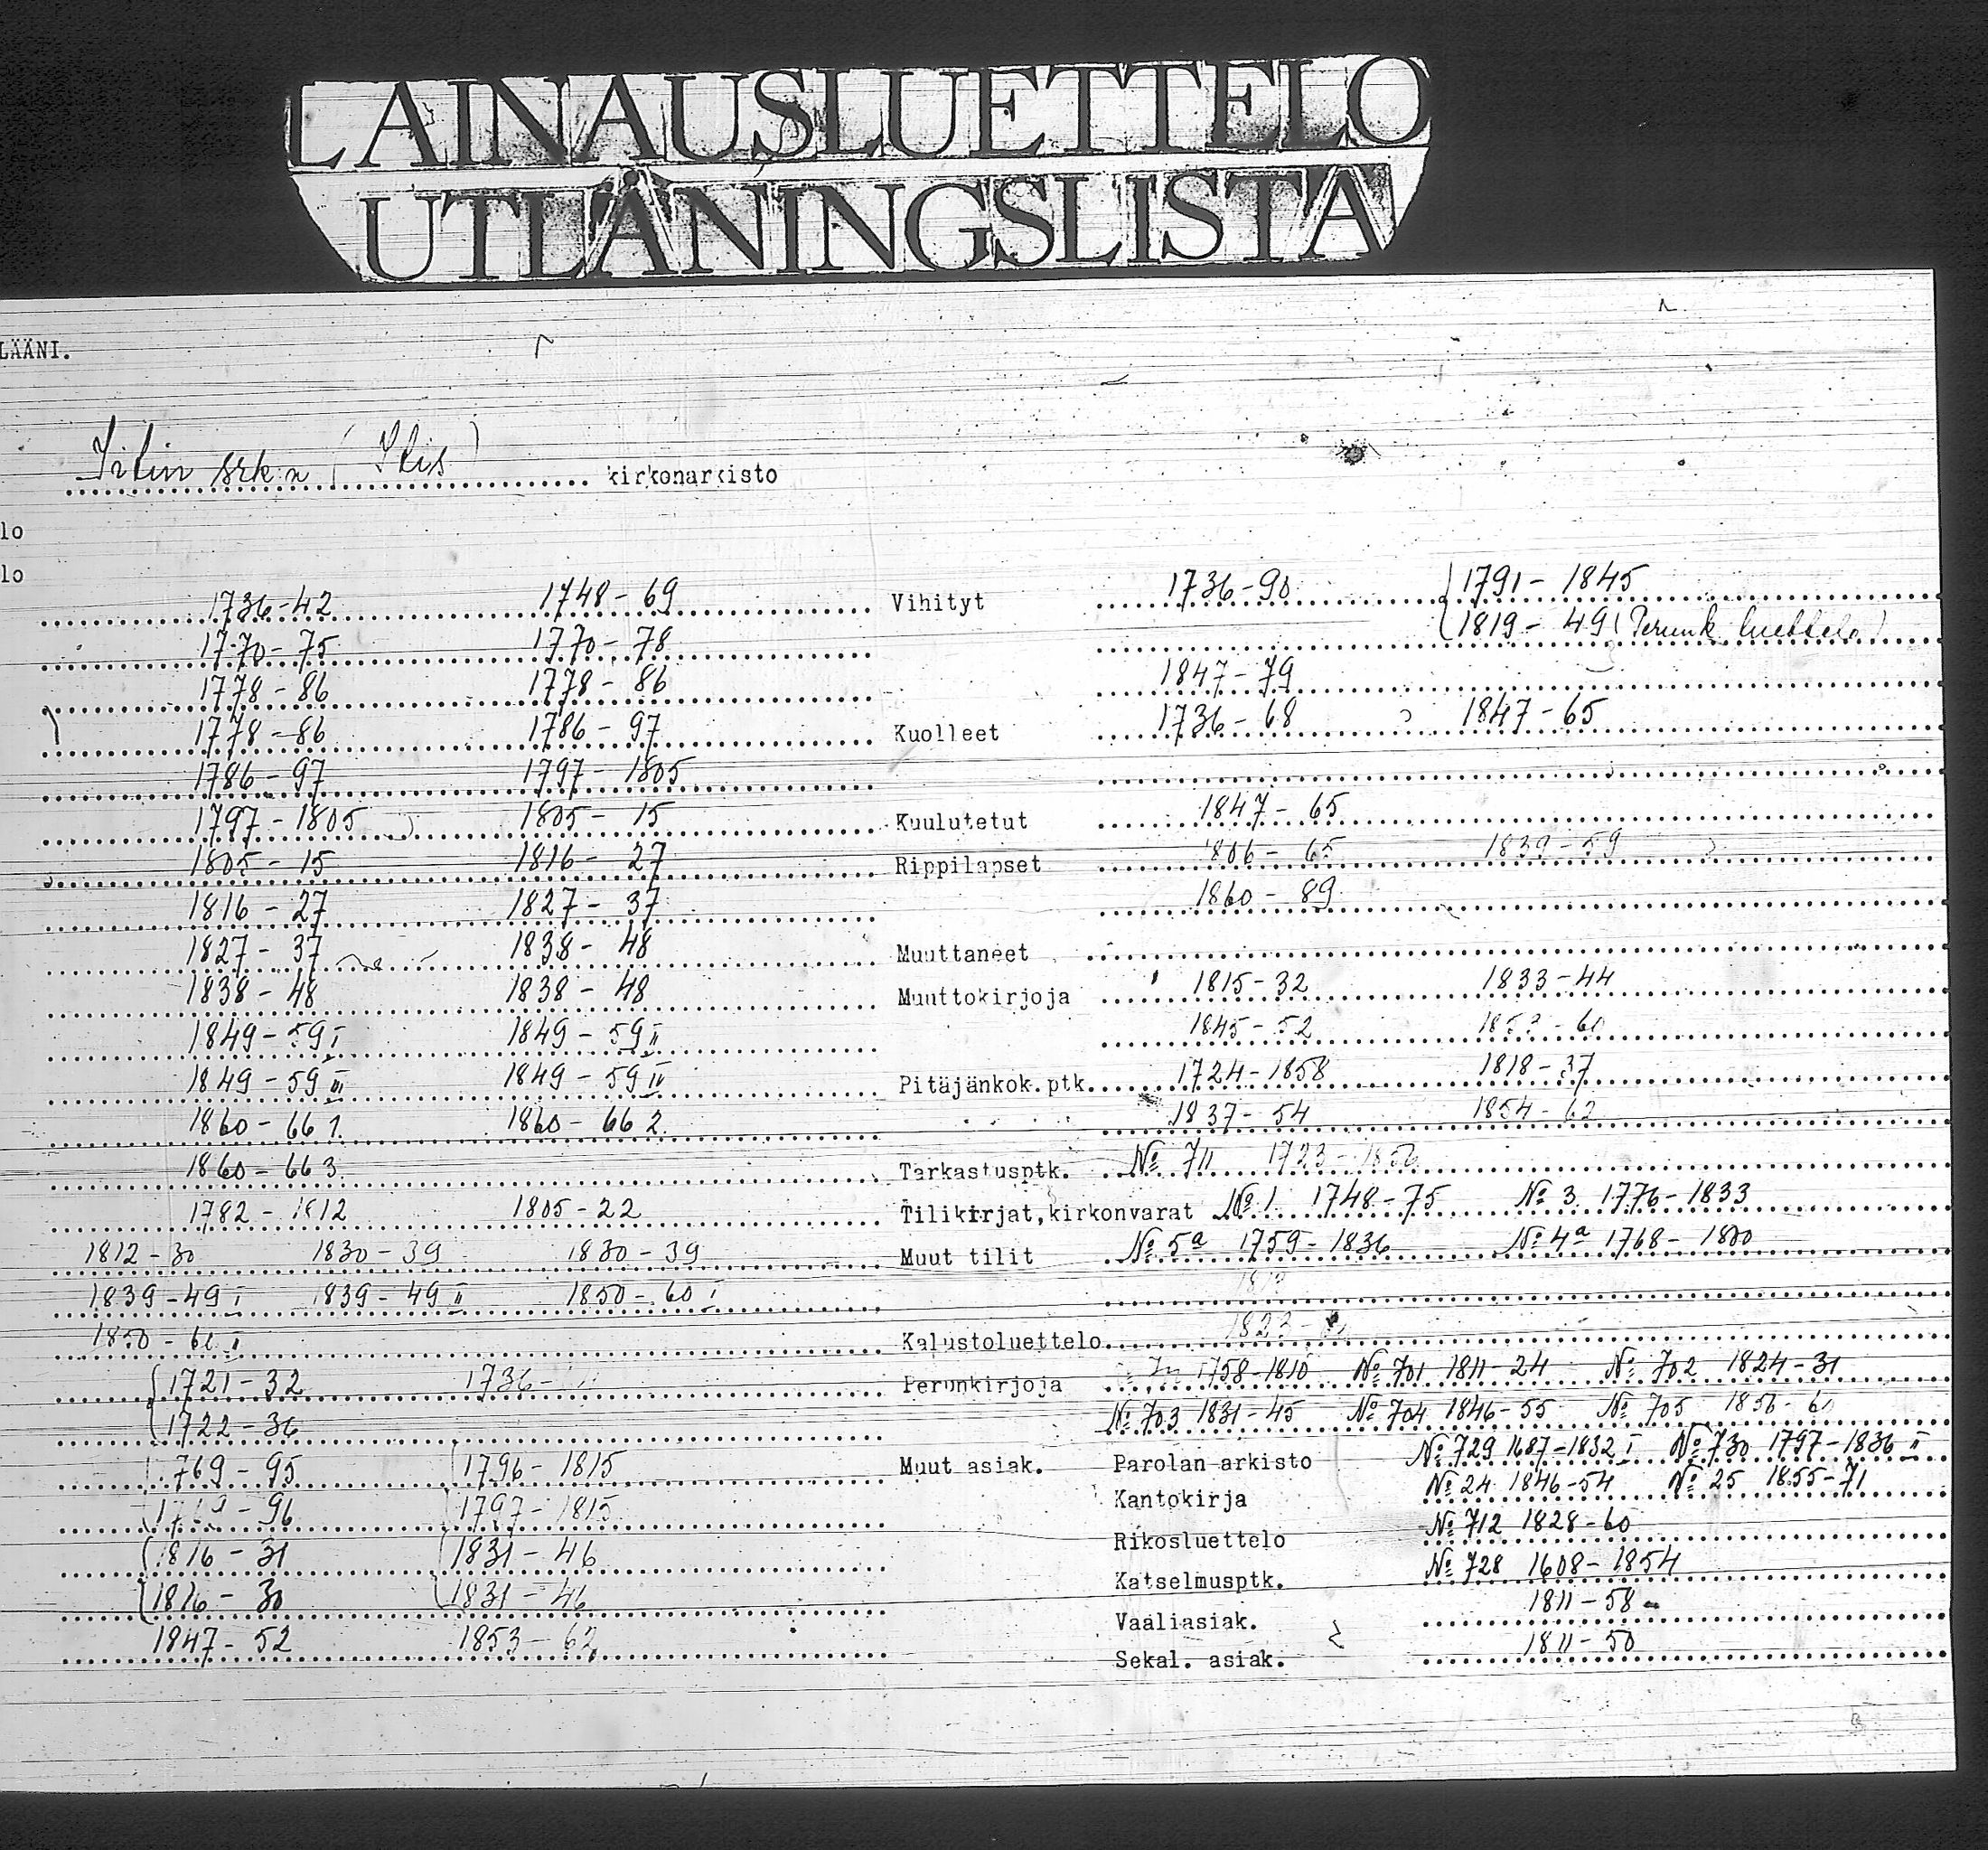 LAINAUSLUETTELO
UTLÅNINGSLISTA
LÄÄNI.
Iitin srk:n (Itis) kirkonarkisto
lo
lo
1736-42 1748-69 Vihityt 1736-90 1791-1845
1770-75 1770-78 1819-49 (Perunk. luettelo)
1778-86 1778-86 1847-79
1778-86 1786-97 Kuolleet 1736-68 1847-65
1786-97 1797-1805
1797-1805 1805-15 Kuulutetut 1847-65
1805-15 1816-27 Rippilapset 1806-65 1839-59
1816-27 1827-37 1860-89
1827-37 1838-48 Muuttaneet
1838-48 1838-48 Muuttokirjoja 1815-32 1833-44
1849-59 I 1849-59 II 1845-52 1853-60
1849-59 III 1849-59 IV Pitäjänkok.ptk. 1724-1858 1818-37
1860-66 1. 1860-66 2. 1837-54 1854-62
1860-66 3. Tarkastusptk. № 711 1723-1856
1782-1812 1805-22 Tilikirjat,kirkonvarat № 1 1748-75 № 3 1776-1833
1812-30 1830-39 1830-39 Muut tilit № 5a 1759-1836 № 4a 1768-1800
1839-49 I 1839-49 II 1850-60 I
1850-60 II Kalustoluettelo 1823-
1721-32 1736- Perunkirjoja 1758-1810 № 701 1811-24 № 702 1824-31
1722-36 № 703 1831-45 № 704 1846-55 № 705 1856-60
1769-95 1796-1815 Muut asiak. Parolan arkisto № 729 1687-1832 I № 730 1797-1836 II
1769-96 1797-1815 Kantokirja № 24 1846-54 № 25 1855-71
1816-31 1831-46 Rikosluettelo № 712 1828-60
1816-30 1831-46 Katselmusptk. № 728 1608-1854
Vaaliasiak. 1811-58
1847-52 1853-62 Sekal. asiak. 1811-50